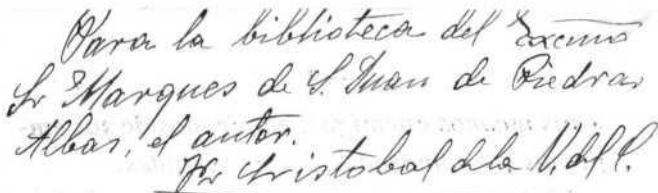 Para la biblioteca del Excmo
Sr Marques de S. Juan de Piedras
Albas, el autor.
Fr Cristobal de la V. del C.